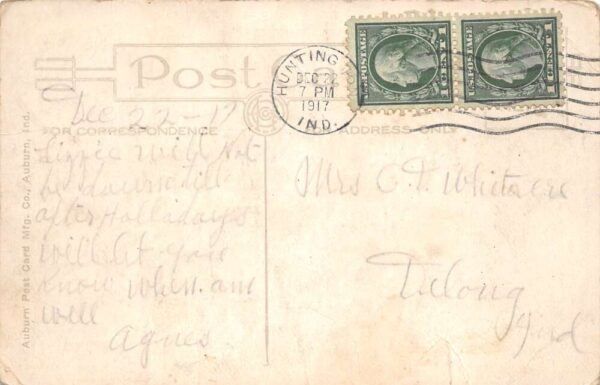 Post
HUNTING
DEC 22
7 PM
1917
IND.
U.S. POSTAGE
1 CENT 1
U.S. POSTAGE
1 CENT 1
FOR CORRESPONDENCE
ADDRESS ONLY
Auburn Post Card Mfg. Co., Auburn, Ind.
Dec 22-17
Lizzie will not
be down till
after Holladays
will let you
know when. am
well
Agnes
Mrs C. D. Whitacre
Delong
Ind